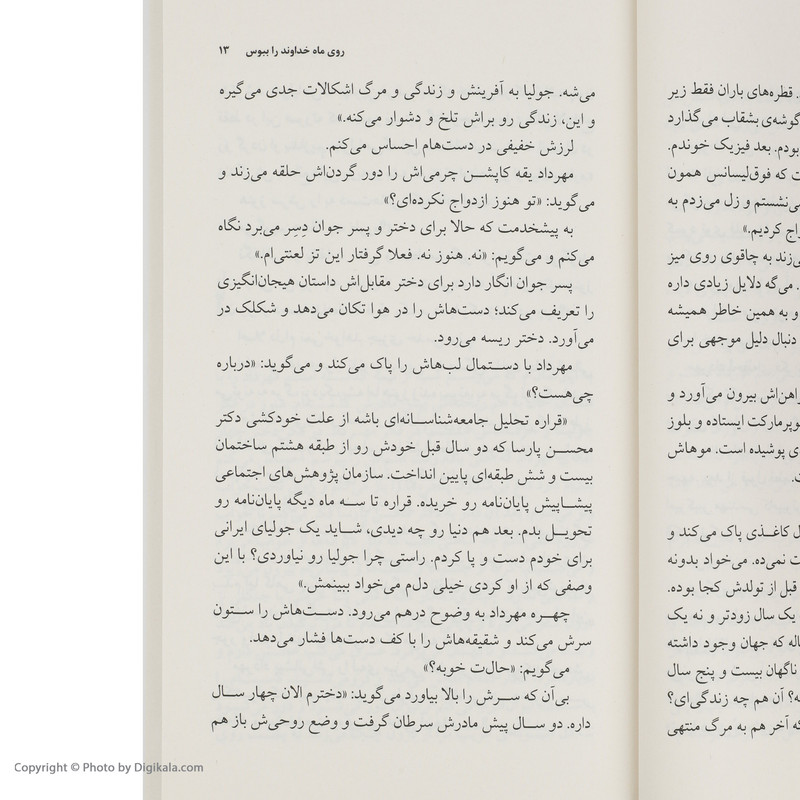 روی ماه خداوند را ببوس ۱۳
می‌شه. جولیا به آفرینش و زندگی و مرگ اشکالات جدی می‌گیره
و این، زندگی رو براش تلخ و دشوار می‌کنه.»
لرزش خفیفی در دست‌هام احساس می‌کنم.
مهرداد یقه کاپشن چرمی‌اش را دور گردن‌اش حلقه می‌زند و
می‌گوید: «تو هنوز ازدواج نکرده‌ای؟»
به پیشخدمت که حالا برای دختر و پسر جوان دِسِر می‌برد نگاه
می‌کنم و می‌گویم: «نه. هنوز نه. فعلا گرفتار این تز لعنتی‌ام.»
پسر جوان انگار دارد برای دختر مقابل‌اش داستان هیجان‌انگیزی
را تعریف می‌کند؛ دست‌هاش را در هوا تکان می‌دهد و شکلک در
می‌آورد. دختر ریسه می‌رود.
مهرداد با دستمال لب‌هاش را پاک می‌کند و می‌گوید: «درباره
چی‌هست؟»
«قراره تحلیل جامعه‌شناسانه‌ای باشه از علت خودکشی دکتر
محسن پارسا که دو سال قبل خودش رو از طبقه هشتم ساختمان
بیست و شش طبقه‌ای پایین انداخت. سازمان پژوهش‌های اجتماعی
پیشاپیش پایان‌نامه رو خریده. قراره تا سه ماه دیگه پایان‌نامه رو
تحویل بدم. بعد هم دنیا رو چه دیدی، شاید یک جولیای ایرانی
برای خودم دست و پا کردم. راستی چرا جولیا رو نیاوردی؟ با این
وصفی که از او کردی خیلی دلم می‌خواد ببینمش.»
چهره مهرداد به وضوح درهم می‌رود. دست‌هاش را ستون
سرش می‌کند و شقیقه‌هاش را با کف دست‌ها فشار می‌دهد.
می‌گویم: «حال‌ت خوبه؟»
بی‌آن که سرش را بالا بیاورد می‌گوید: «دخترم الان چهار سال
داره. دو سال پیش مادرش سرطان گرفت و وضع روحی‌ش باز هم
قطره‌های باران فقط زیر
گوشه‌ی بشقاب می‌گذارد
بودم. بعد فیزیک خوندم.
ت که فوق‌لیسانس همون
ی‌نشستم و زل می‌زدم به
اج کردیم.»
ی‌زند به چاقوی روی میز
می‌گه دلایل زیادی داره
و به همین خاطر همیشه
دنبال دلیل موجهی برای
راهن‌اش بیرون می‌آورد و
وپرمارکت ایستاده و بلوز
ی پوشیده است. موهاش
ت.
ل کاغذی پاک می‌کند و
ت نمی‌ده. می‌خواد بدونه
قبل از تولدش کجا بوده.
یک سال زودتر و نه یک
اله که جهان وجود داشته
ناگهان بیست و پنج سال
ه؟ آن هم چه زندگی‌ای؟
که آخر هم به مرگ منتهی
Copyright © Photo by Digikala.com